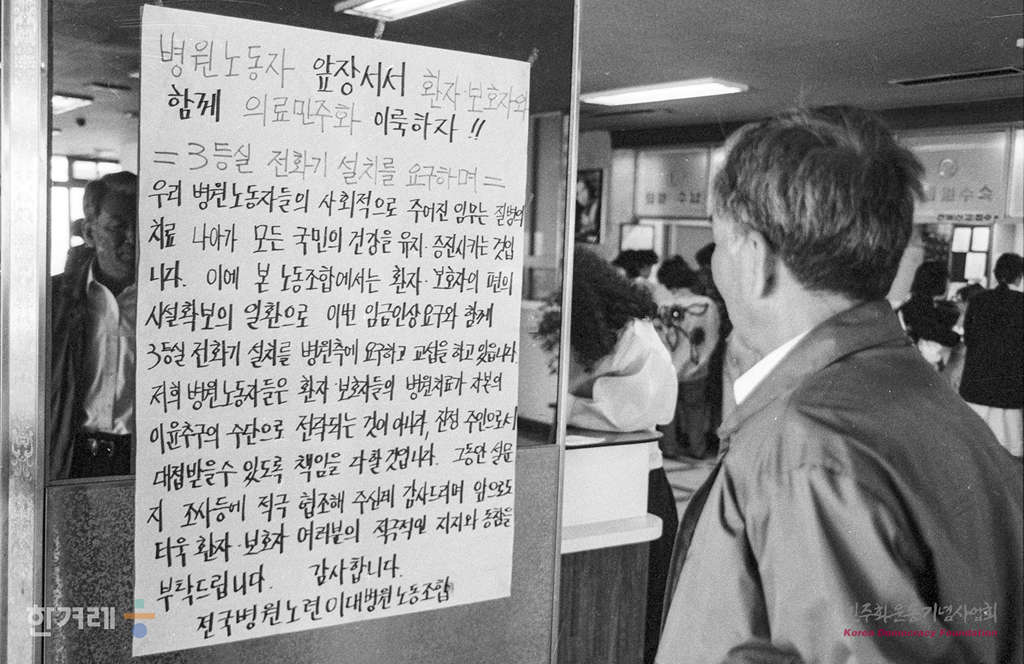 병원노동자 앞장서서 환자·보호자와
함께 의료민주화 이룩하자 !!
= 3등실 전화기 설치를 요구하며 =
우리 병원노동자들의 사회적으로 주어진 임무는 질병의
치료 나아가 모든 국민의 건강을 유지·증진시키는 것입
니다. 이에 본 노동조합에서는 환자·보호자의 편의
시설확보의 일환으로 이번 임금인상요구와 함께
3등실 전화기 설치를 병원측에 요구하고 교섭을 하고 있읍니다.
저희 병원노동자들은 환자 보호자들의 병원치료가 자본의
이윤추구의 수단으로 전락되는 것이 아니라, 진정 주인으로서
대접받을수 있도록 책임을 다할 것입니다. 그동안 설문
지 조사등에 적극 협조해 주심께 감사드리며 앞으로도
더욱 환자·보호자 여러분의 적극적인 지지와 동참을
부탁드립니다. 감사합니다.
전국병원노련이대병원노동조합
한겨레
민주화운동기념사업회
Korea Democracy Foundation